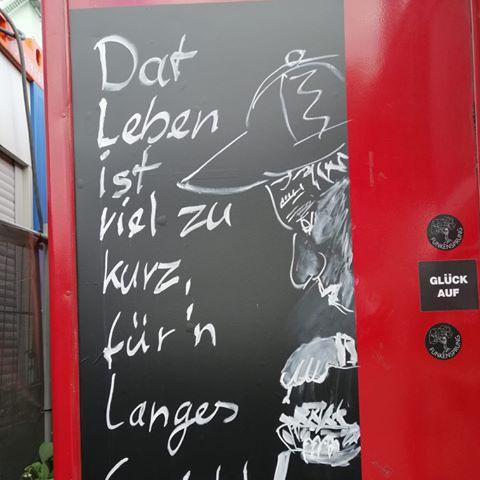 Dat
Leben
ist
viel zu
kurz,
für'n
Langes
FUNKENSPRUNG
GLÜCK
AUF
FUNKENSPRUNG